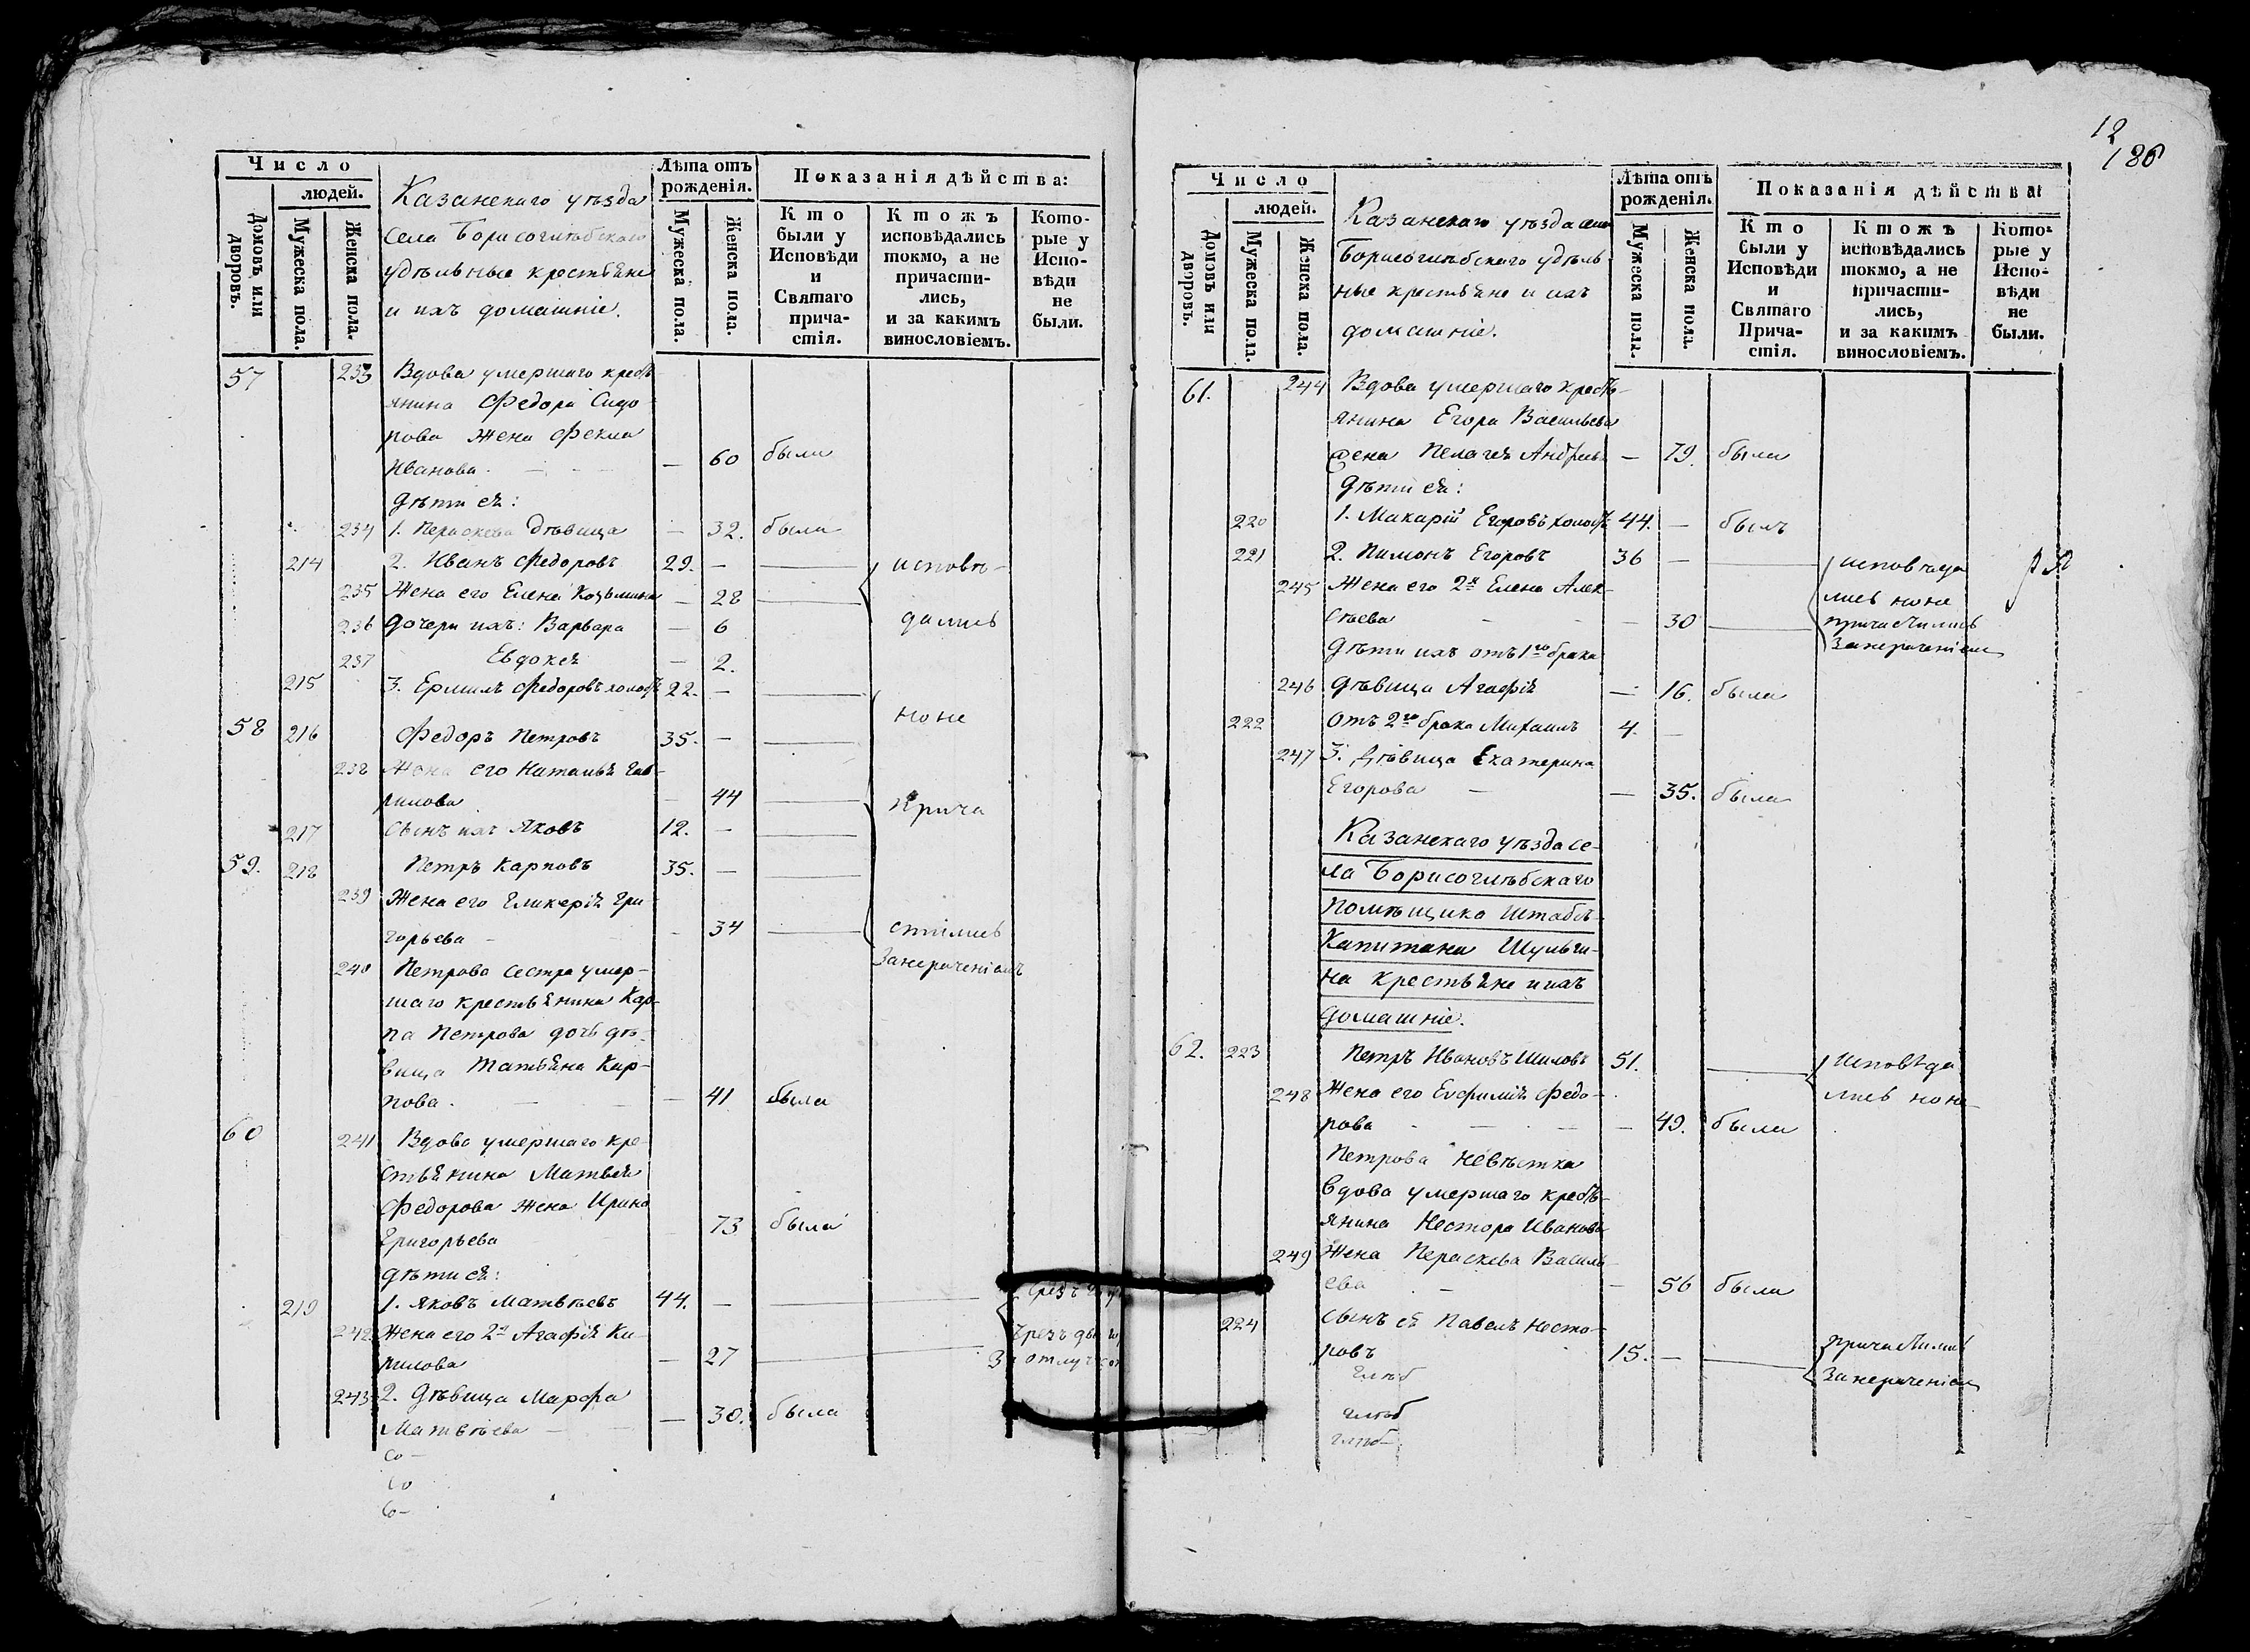 Число
людей.
Домовъ или дворовъ.
Мужеска пола.
Женска пола.
Казанскаго уѣзда
села Борисоглѣбскаго
удѣльные крестьяне
и ихъ домашніе.
Лѣта отъ рожденія.
Мужеска пола.
Женска пола.
Показанія дѣйства:
Кто были у Исповѣди и Святаго причастія.
Ктожъ исповѣдались токмо, а не причастились, и за какимъ винословіемъ.
Которые у Исповѣди не были.
57 233 Вдова умершаго кресть
янина Федора Сидо
рова жена Фекла
Иванова. — 60 была
дѣти ея:
234 1. Параскева дѣвица — 32. была
214 2. Иванъ Федоровъ 29. — исповѣ-
235 Жена его Елена Козьмина — 28
дались
236 дочери ихъ: Варвара — 6
237 Евдокея — 2.
215 3. Ермилъ Федоровъ холостъ 22. —
но не
58 216 Федоръ Петровъ 35. —
238 Жена его Наталья Гав-
рилова — 44
прича
217 сынъ ихъ Яковъ 12. —
59. 218 Петръ Карповъ 35. —
239 Жена его Гликерія Гри
горьева — 34 стились
за нераченіемъ
240 Петрова сестра умер-
шаго крестьянина Кар-
па Петрова дочь дѣ-
вица Татьяна Кар-
пова. — 41 была
60 241 Вдова умершаго кре
стьянина Матвея
Федорова жена Ирина
Григорьева 73 была
дѣти ея:
219 1. Яковъ Матвѣевъ 44. —
242 Жена его 2я Агафія Ки
рилова — 27
243 2. дѣвица Марфа
Матвѣева — 30. была
со-
со
со-
12
186
Число
людей.
Домовъ или дворовъ.
Мужеска пола.
Женска пола.
Казанскаго уѣзда села
Борисоглѣбскаго удѣль
ные крестьяне и ихъ
домашніе.
Лѣта отъ рожденія.
Мужеска пола.
Женска пола.
Показанія дѣйства:
Кто были у Исповѣди и Святаго Причастія.
Ктожъ исповѣдались токмо, а не причастились, и за какимъ винословіемъ.
Которые у Исповѣди не были.
61. 244 Вдова умершаго кресть-
янина Егора Васильева
жена Пелагея Андреева — 79. была
дѣти ея:
220 1. Макарій Егоровъ холостъ 44. — былъ
221 2. Пимонъ Егоровъ 36 — исповѣда
245 Жена его 2я Елена Алек-
лись но не
сѣева — 30 причастились
за нераченіемъ
дѣти ихъ отъ 1го брака
246 дѣвица Агафія — 16. была
222 отъ 2го брака Михаилъ 4. —
247 3. дѣвица Екатерина
Егорова — 35. была
Казанскаго уѣзда се-
ла Борисоглѣбскаго
помѣщика Штабсъ-
Капитана Шульги-
на крестьяне и ихъ
домашніе.
62. 223 Петръ Ивановъ Шиловъ 51. исповѣда
248 Жена его Евфимія Федо- лись но не
рова — 49. была
Петрова невѣстка
вдова умершаго кресть-
янина Нестора Иванова
249 Жена Параскева Василь
ева — 56 была
224 сынъ ея Павелъ Несто-
ровъ 15. — причастились
за нераченіемъ
глѣб
глѣб
глѣб-